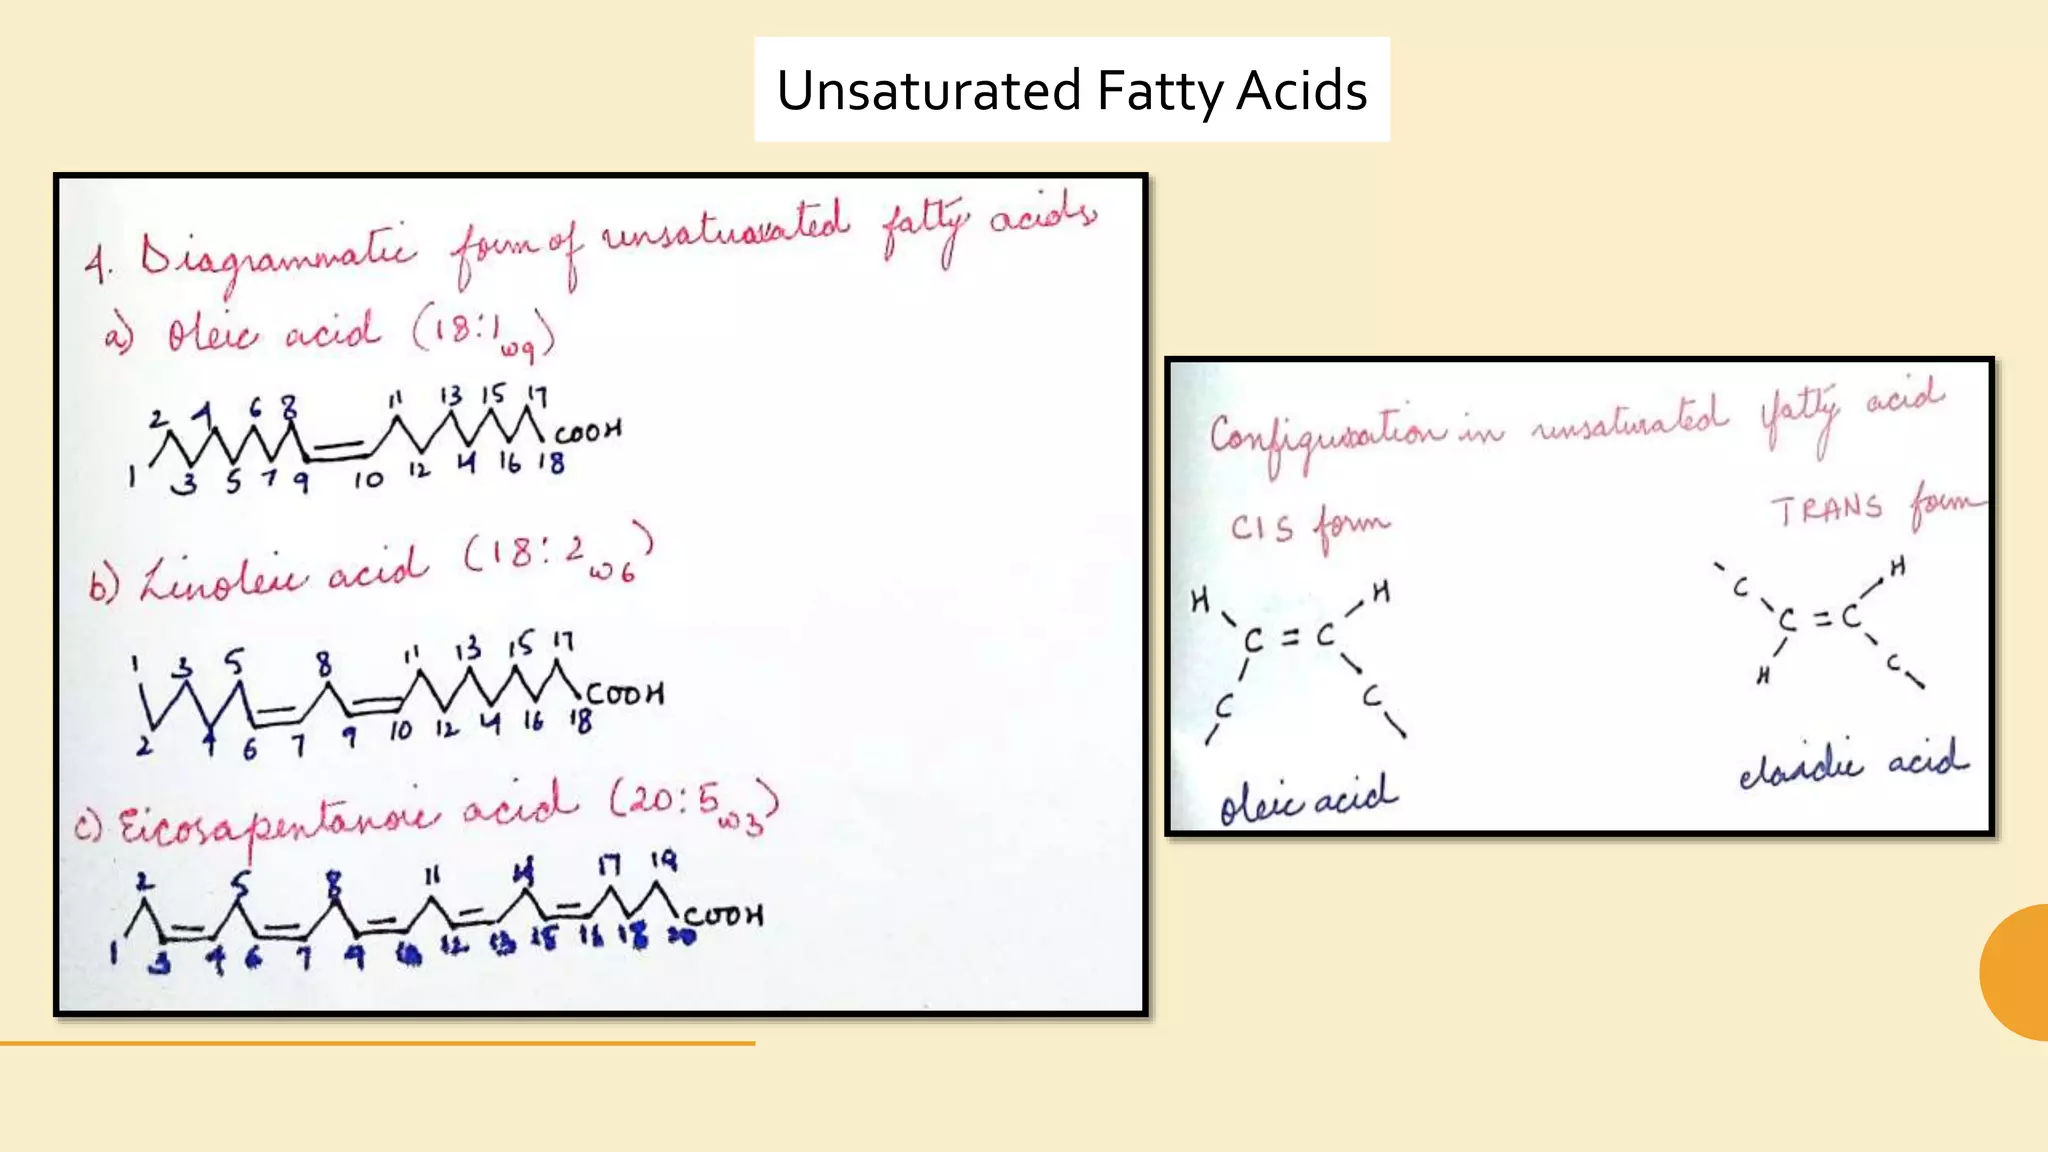 Unsaturated Fatty Acids
4. Diagrammatic form of unsaturated fatty acids
a) Oleic acid (18:1 w9)
2 4 6 8 11 13 15 17
COOH
1 3 5 7 9 10 12 14 16 18
b) Linoleic acid (18:2 w6)
1 3 5 8 11 13 15 17
COOH
2 4 6 7 9 10 12 14 16 18
c) Eicosapentanoic acid (20:5 w3)
2 5 8 11 14 17 19
COOH
1 3 4 6 7 9 10 12 13 15 16 18 20
Configuration in unsaturated fatty acid
CIS form TRANS form
H H
C = C
C C
oleic acid
C H
C = C
H C
elaidic acid